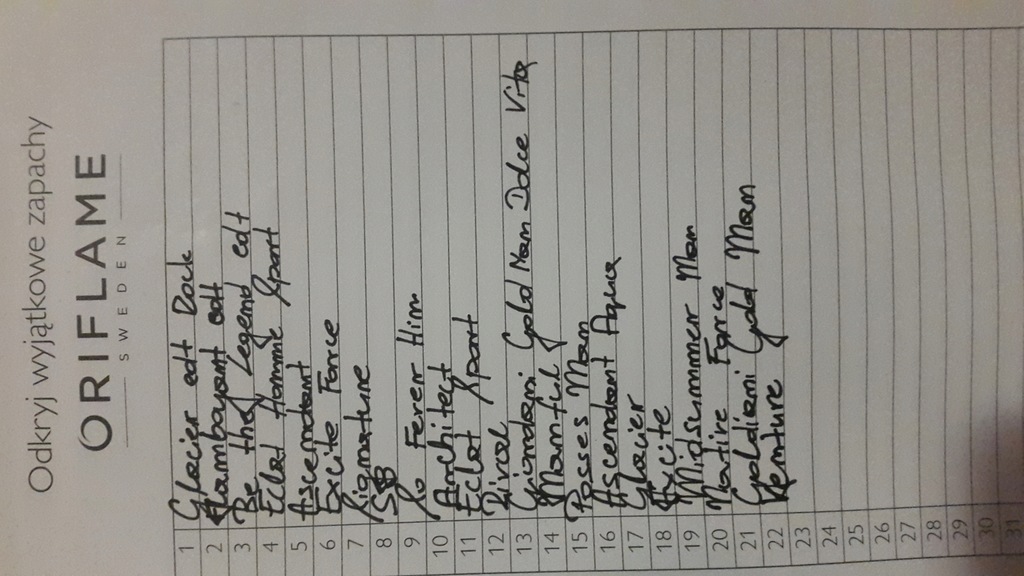 Odkryj wyjątkowe zapachy
ORIFLAME
SWEDEN
1 Glacier edt Rock
2 Flamboyant edt
3 Be the Legend edt
4 Eclat Homme Sport
5 Ascendant
6 Excite Force
7 Signature
8 S8
9 So Fever Him
10 Architect
11 Eclat Sport
12
13 Giordani Gold Man Dolce Vita
14 Manful
15 Posses Man
16 Ascendant Aqua
17 Glacier
18
19 Midsummer Man
20 Force
21 Gold Man
22
23
24
25
26
27
28
29
30
31